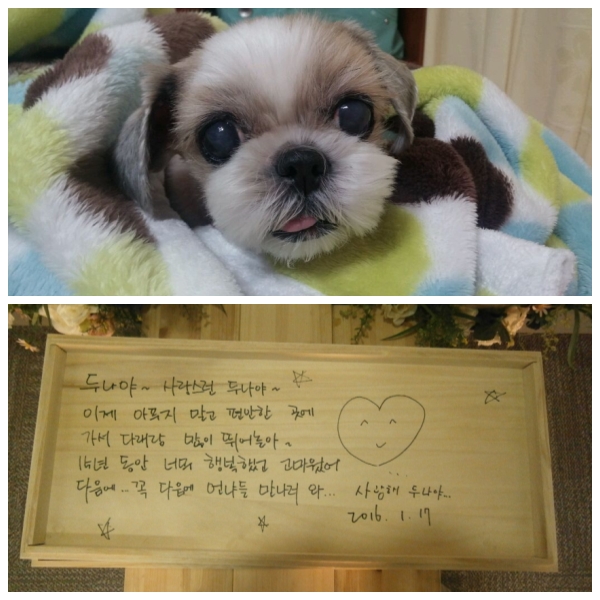 두나야~ 사랑스런 두나야~
이제 아프지 말고 편안한 곳에
가서 다래랑 많이 뛰어놀아~
15년 동안 너무 행복했고 고마웠어
다음에.. 꼭 다음에 언냐들 만나러 와... 사랑해 두나야...
2016. 1. 17